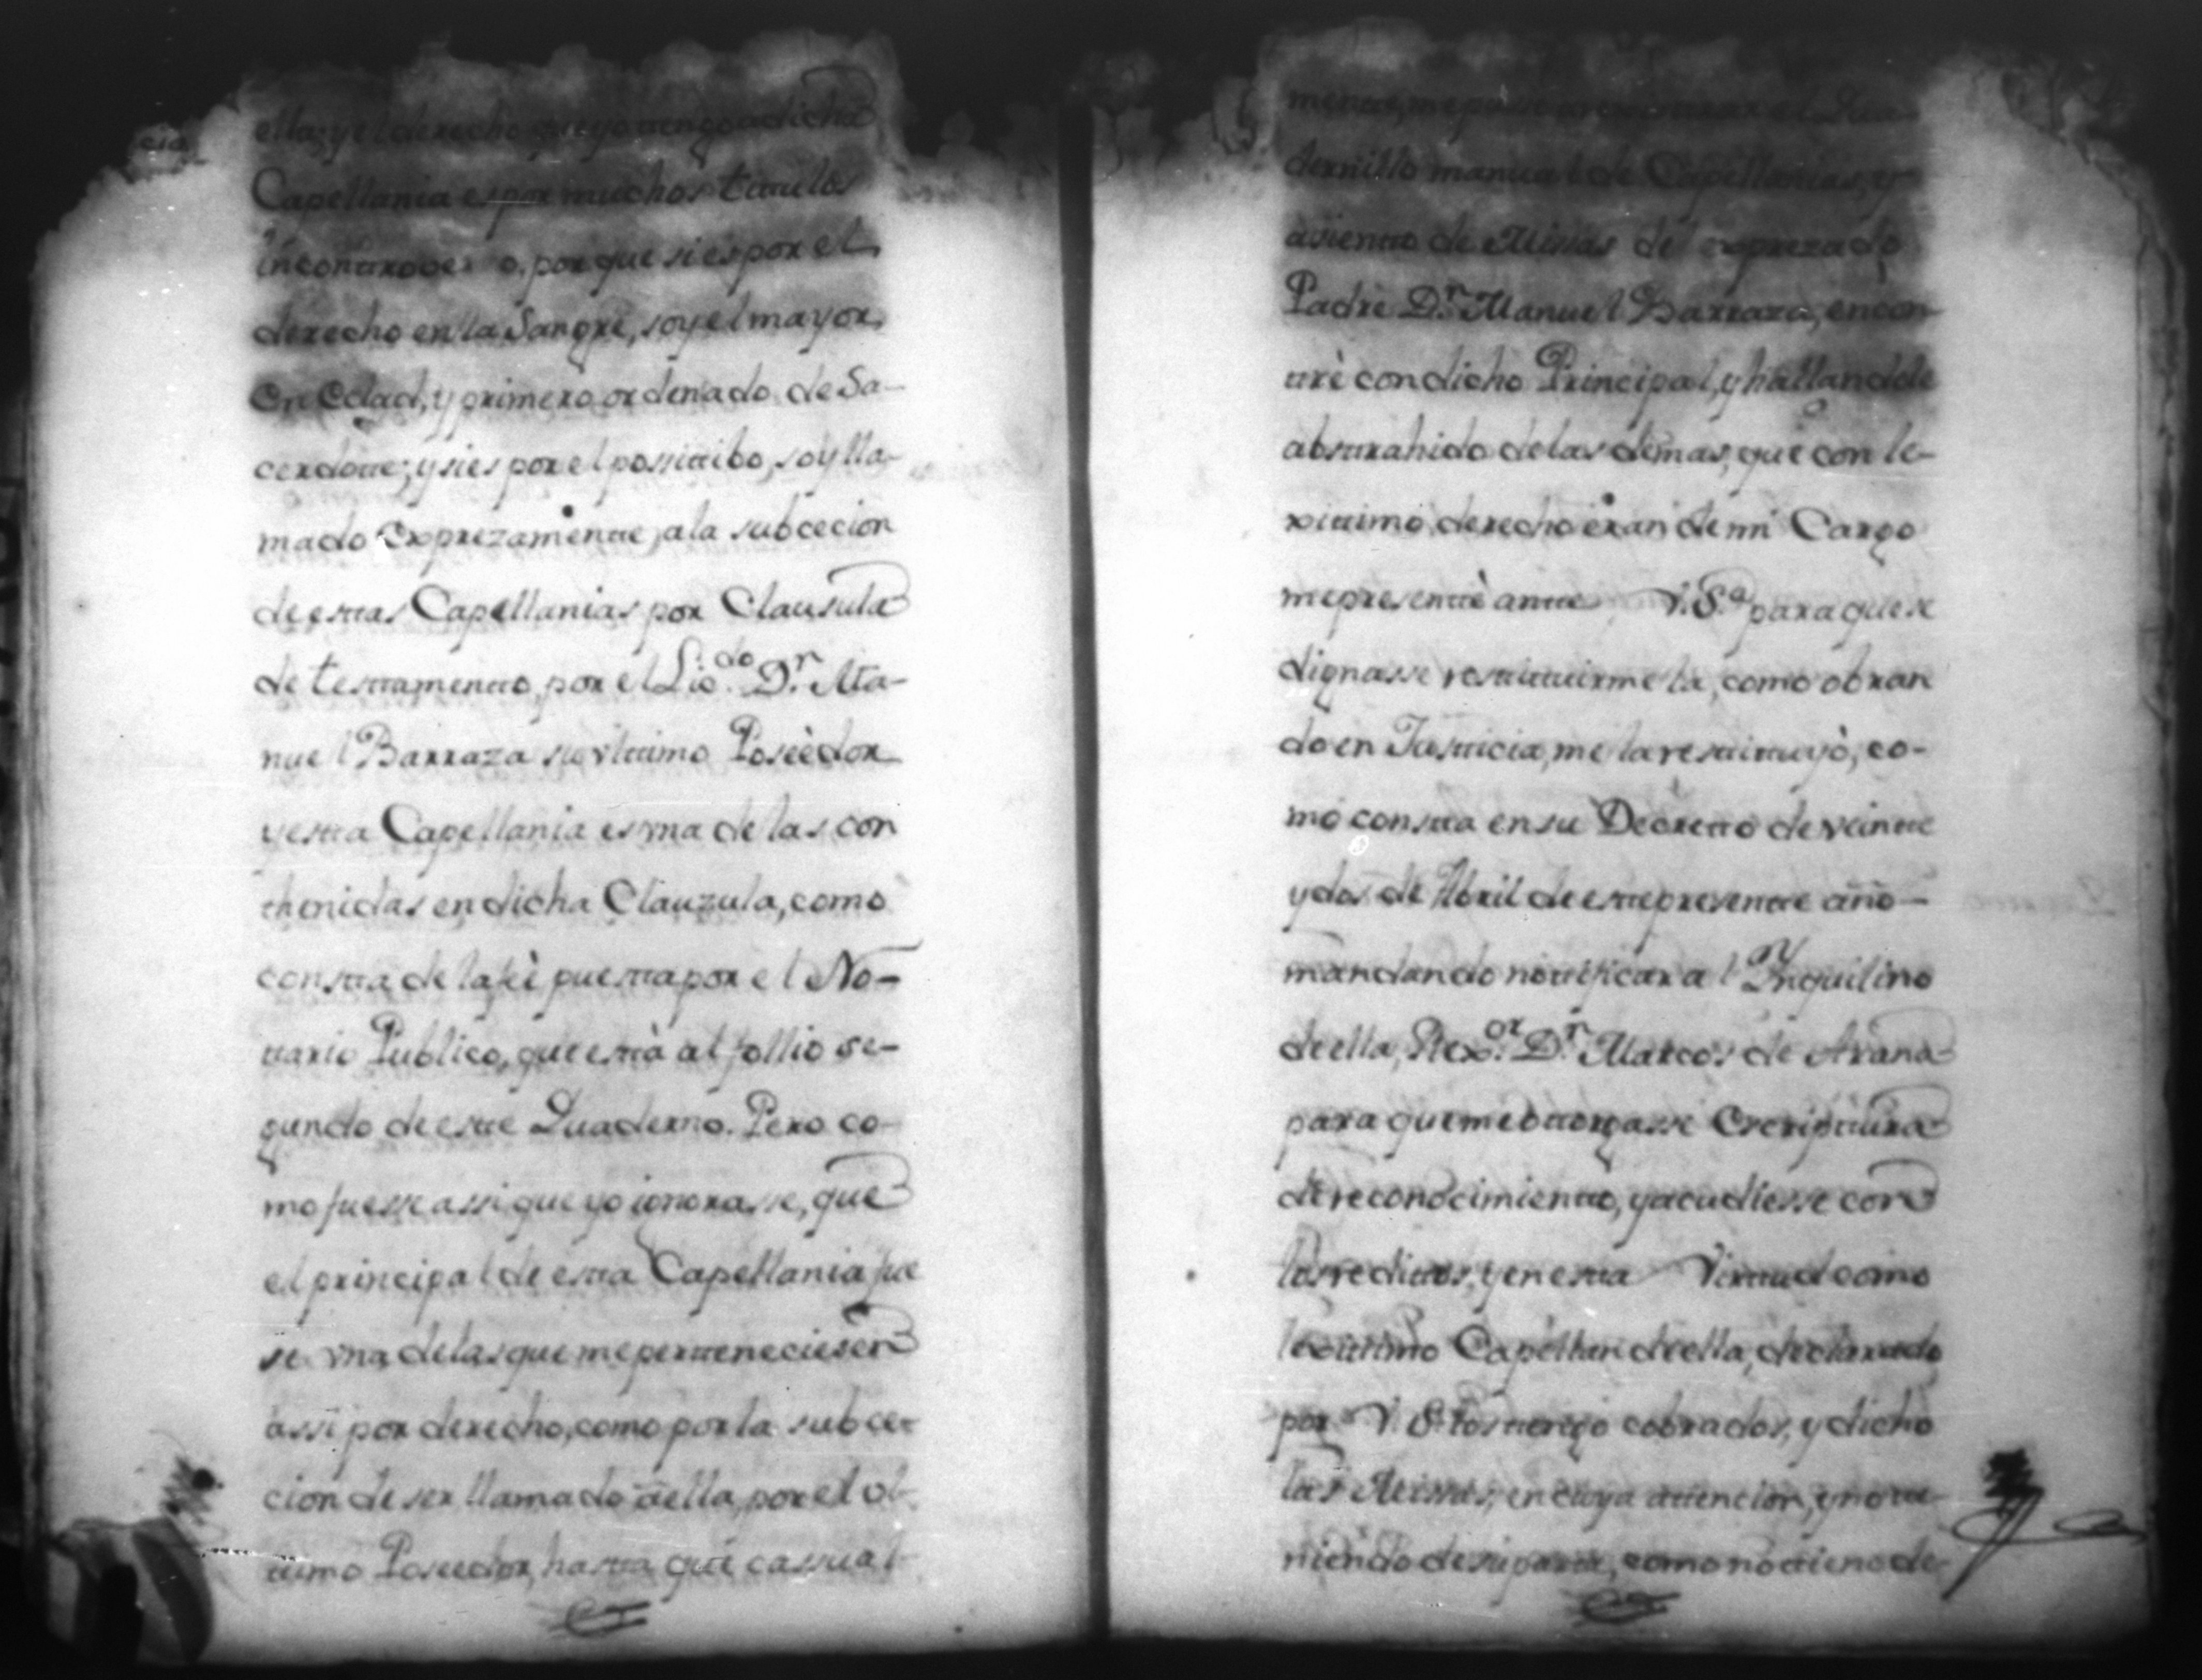 cia
ella; y el derecho que yo tengo a dicha
Capellania es por muchos titulos
incontrover o, porque si es por el
derecho en la Sangre, soy el mayor
en Edad, y primero ordenado de Sa-
cerdote; y si es por el possitibo, soy lla-
mado Exprezamente, a la subcecion
de estas Capellanias por Clausula
de testamento, por el Lic.do D.n Ma-
nuel Barraza su vltimo Poseèdor
y esta Capellania es vna de las con
thenidas en dicha Clauzula, como
consta de la feè puesta por el No-
tario Publico, que està al follio se-
gundo de este Quaderno. Pero co-
mo fuesse assi que yo ignorasse, que
el principal de esta Capellania fue
se vna de las que me perteneciesen
assi por derecho, como por la subce-
cion de ser llamado a ella, por el ol-
timo Poseedor, hasta que cassual-
mente, me puse a el Qua
dernillo manual de Capellanias, y
asiento de Missas del exprezado
Padre D.n Manuel Barraza, encon-
trè con dicho Principal, y hallandole
abstrahido de las demas, que con le-
xitimo derecho eran de mi Cargo
me presentè ante V. S.a para que se
dignasse restituirmela, como obran
do en Justicia, me la restituyò, co-
mo consta en su Decretto de veinte
y dos de Abril de este presente año-
mandando notificar al Ynquilino
de ella, Rex.or D.n Marcos de Arana
para que me otorgasse Escriptura
de reconocimiento, y acudiesse con
los reditos, y en esta Virtud como
lexitimo Capellan de ella, declarado
por V. S. los tengo cobrados, y dicho
las Missas, en cuya attencion, y no te-
niendo de su parte, como no tiene de-